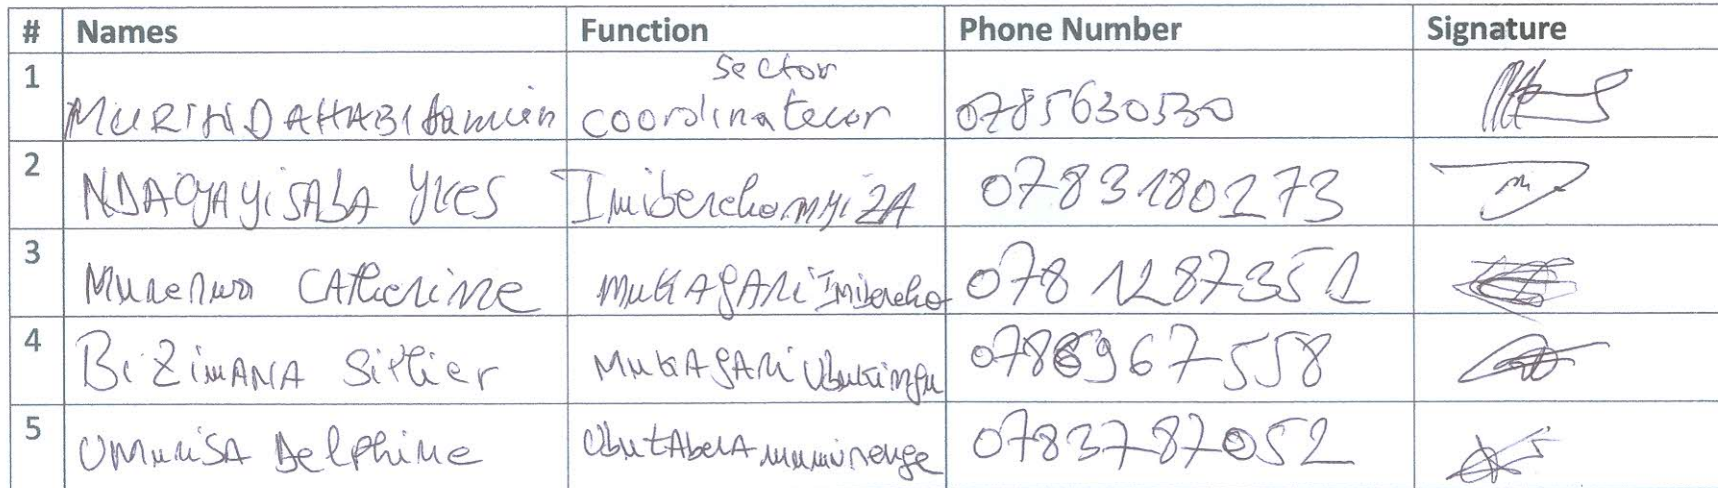 # Names Function Phone Number Signature
1 MURINDAHABI Damien sector coordinateur 0785630530
2 NDAGAYISABA YVES Imiberehomyiza 0783180273
3 Murerwa CATherine MUKAGARi Imibereho 078 1287351
4 BiZimANA Silier MUKAGARi Ubukungu 0788967558
5 UMunSA Delphine UbutAberA mumurenge 0783787052